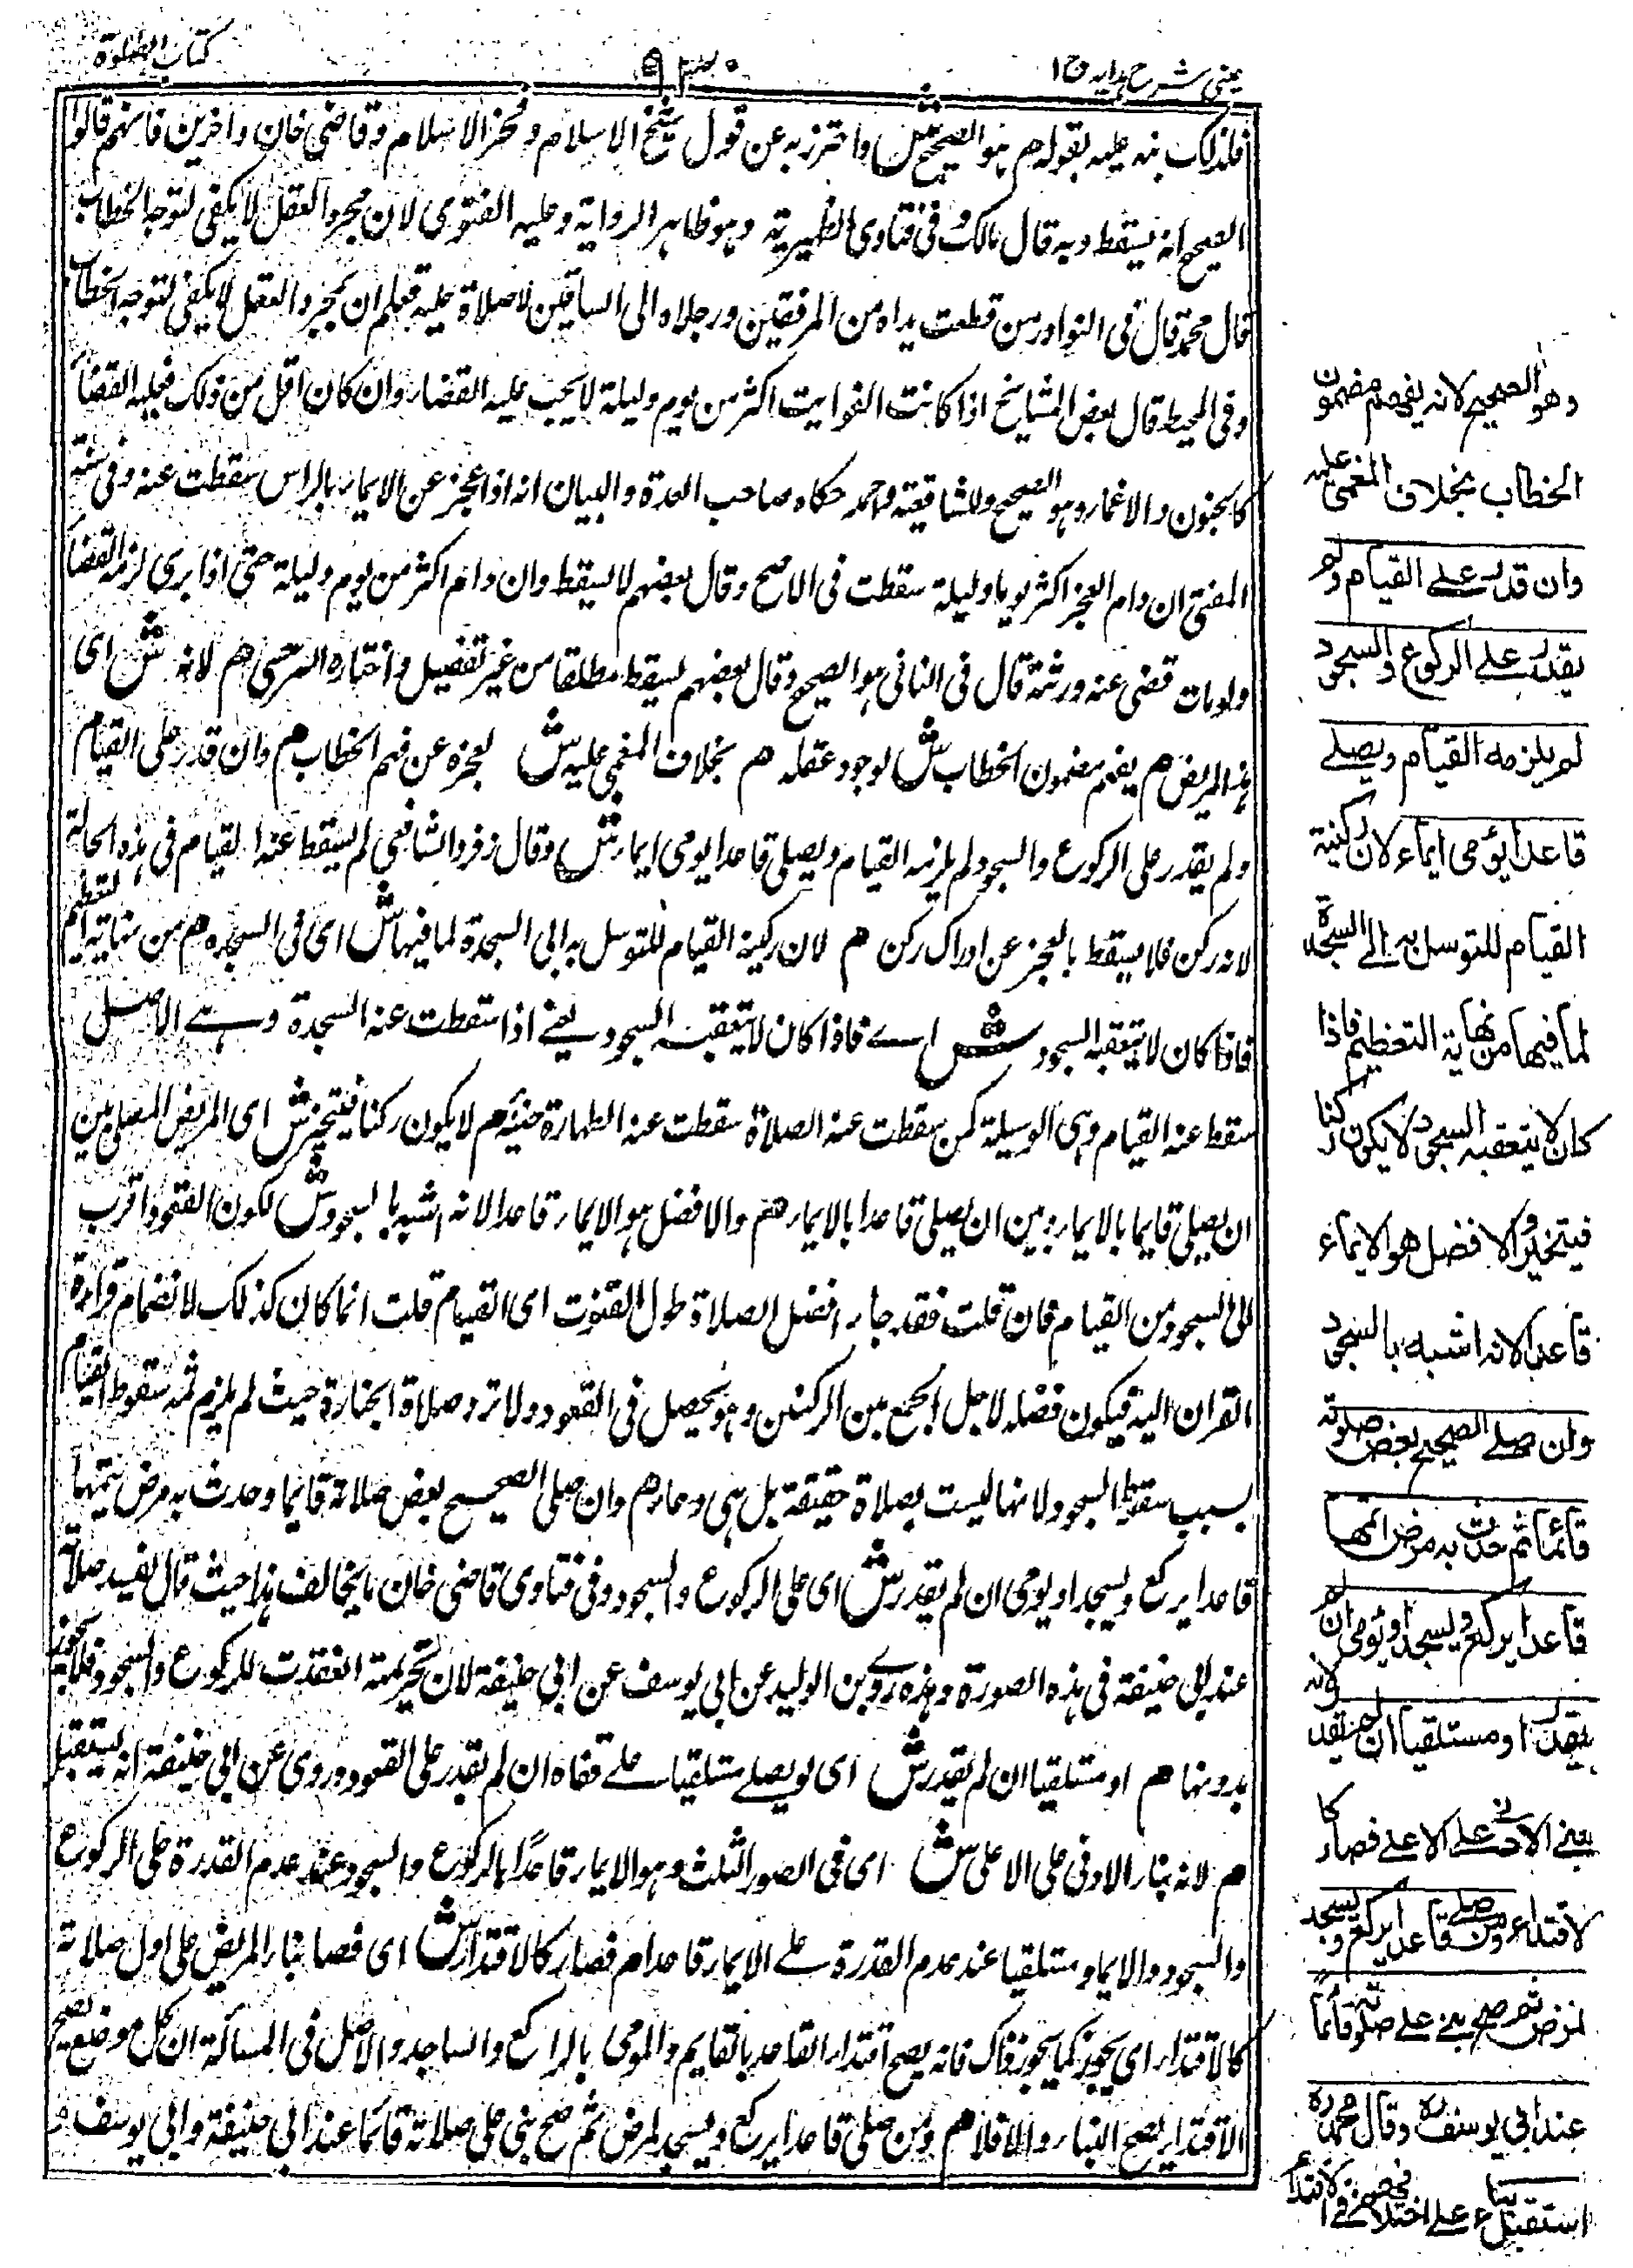 عینی شرح ہدایہ ج ۱
۹۳۰
کتاب الصلوٰة
فلذلک نبه علیه بقوله م هو الصحیح ش واحترز به عن قول شیخ الاسلام وفخر الاسلام وقاضی خان واخرین فانهم قالوا
الصحیح انه یسقط وبه قال مالک وفی فتاوی الظهیریة وهو ظاهر الروایة وعلیه الفتوی لان مجرد العقل لا یکفی لتوجه الخطاب
قال محمد قال فی النوادر من قطعت یداه من المرفقین ورجلاه الی الساقین لا صلاة علیه فعلم ان مجرد العقل لا یکفی لتوجه الخطاب
وفی المحیط قال بعض المشایخ اذا کانت الفوایت اکثر من یوم ولیلة لا یجب علیه القضاء وان کان اقل من ذلک فعلیه القضاء
کالجنون والاغماء وهو الصحیح وللشافعیة وجه حکاه صاحب العدة والبیان انه اذا عجز عن الایماء بالراس سقطت عنه وفی منیة
المفتی ان دام العجز اکثر یوما ولیلة سقطت فی الاصح وقال بعضهم لا یسقط وان دام اکثر من یوم ولیلة حتی اذا بری لزمه القضاء
ولو مات قضی عنه ورثته قال فی الثانی هو الصحیح وقال بعضهم یسقط مطلقا من غیر تفصیل واختاره السرخسی م لانه ش ای
هذا المریض م یفهم مضمون الخطاب ش لوجود عقله م بخلاف المغمی علیه ش لعجزه عن فهم الخطاب م وان قدر علی القیام
ولم یقدر علی الرکوع والسجود لم یلزمه القیام ویصلی قاعدا یومی ایماء ش وقال زفر والشافعی لم یسقط عنه القیام فی هذه الحالة
لانه رکن فلا یسقط بالعجز عن ادراک رکن م لان رکنیة القیام للتوسل به الی السجدة لما فیها ش ای فی السجدة م من نهایة التعظیم
فاذا کان لا یتعقبه السجود ش ای فاذا کان لا یتعقبه السجود یعنی اذا سقطت عنه السجدة وهی الاصل
سقط عنه القیام وهی الوسیلة کمن سقطت عنه الصلاة سقطت عنه الطهارة حینئذ م لا یکون رکنا فیتخیر ش ای المریض المصلی بین
ان یصلی قایما بالایماء وبین ان یصلی قاعدا بالایماء م والافضل هو الایماء قاعدا لانه اشبه بالسجود ش لکون القعود اقرب
الی السجود من القیام فان قلت فقد جاء افضل الصلاة طول القنوت ای القیام قلت انما کان کذلک لانضمام قراءة
القران الیه فیکون فضله لاجل الجمع بین الرکنین وهو یحصل فی القعود ولا ترد صلاة الجنازة حیث لم یلزم ثمه سقوط القیام
بسبب سقوط السجود لانها لیست بصلاة حقیقة بل هی دعاء م وان صلی الصحیح بعض صلاته قائما وحدث به مرض یتمها
قاعدا یرکع ویسجد او یومی ان لم یقدر ش ای علی الرکوع والسجود وفی فتاوی قاضی خان ما یخالف هذا حیث قال تفسد صلاته
عند ابی حنیفة فی هذه الصورة وهذه روی بن الولید عن ابی یوسف عن ابی حنیفة لان تحریمته انعقدت للرکوع والسجود فلا یجوز
بدونها م او مستلقیا ان لم یقدر ش ای او یصلی مستلقیا علی قفاه ان لم یقدر علی القعود وروی عن ابی حنیفة انه یستقبل
م لانه بناء الادنی علی الاعلی ش ای فی الصور الثلث وهو الایماء قاعدا بالرکوع والسجود عند عدم القدرة علی الرکوع
والسجود والایماء ومستلقیا عند عدم القدرة علی الایماء قاعدا م فصار کالاقتداء ش ای فصار بناء المریض علی اول صلاته
کالاقتداء ای یجوز کما یجوز ذاک فانه یصح اقتداء القاعد بالقایم والمومی بالراکع والساجد والاصل فی المسألة ان کل موضع یصح
الاقتداء یصح البناء والا فلا م ومن صلی قاعدا یرکع ویسجد لمرض ثم صح بنی علی صلاته قائما عند ابی حنیفة وابی یوسف
وهو الصحیح لانه یفهم مضمون
الخطاب بخلاف المغمی علیه
وان قدر علی القیام ولم
یقدر علی الرکوع والسجود
لم یلزمه القیام ویصلے
قاعدا یؤمی ایماء لان رکنیة
القیام للتوسل به الی السجدة
لما فیها من نهایة التعظیم فاذا
کان لا یتعقبه السجود لا یکون رکنا
فیتخیر والافضل هو الایماء
قاعدا لانه اشبه بالسجود
وان صلے الصحیح بعض صلوته
قائما ثم حدث به مرض اتمها
قاعدا یرکع ویسجد او یؤمی ان لم
یقدر او مستلقیا ان لم یقدر لانه
بنی الادنی علی الاعلی فصار کا
لاقتداء ومن صلے قاعدا یرکع ویسجد
لمرض ثم صح بنی علی صلوته قائما
عند ابی یوسف رہ وقال محمد رہ
استقبل بناء علی اختلافهم فی الاقتداء